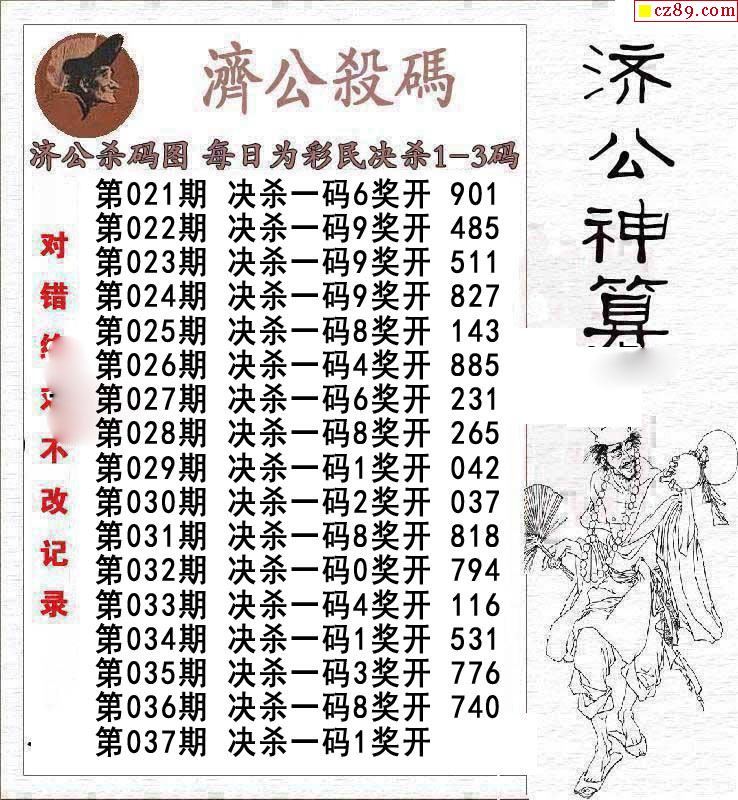 cz89.com
濟公殺碼
济公杀码图 每日为彩民决杀1-3码
第021期 决杀一码6奖开 901
第022期 决杀一码9奖开 485
第023期 决杀一码9奖开 511
第024期 决杀一码9奖开 827
第025期 决杀一码8奖开 143
第026期 决杀一码4奖开 885
第027期 决杀一码6奖开 231
第028期 决杀一码8奖开 265
第029期 决杀一码1奖开 042
第030期 决杀一码2奖开 037
第031期 决杀一码8奖开 818
第032期 决杀一码0奖开 794
第033期 决杀一码4奖开 116
第034期 决杀一码1奖开 531
第035期 决杀一码3奖开 776
第036期 决杀一码8奖开 740
第037期 决杀一码1奖开
对错不改记录
济公神算